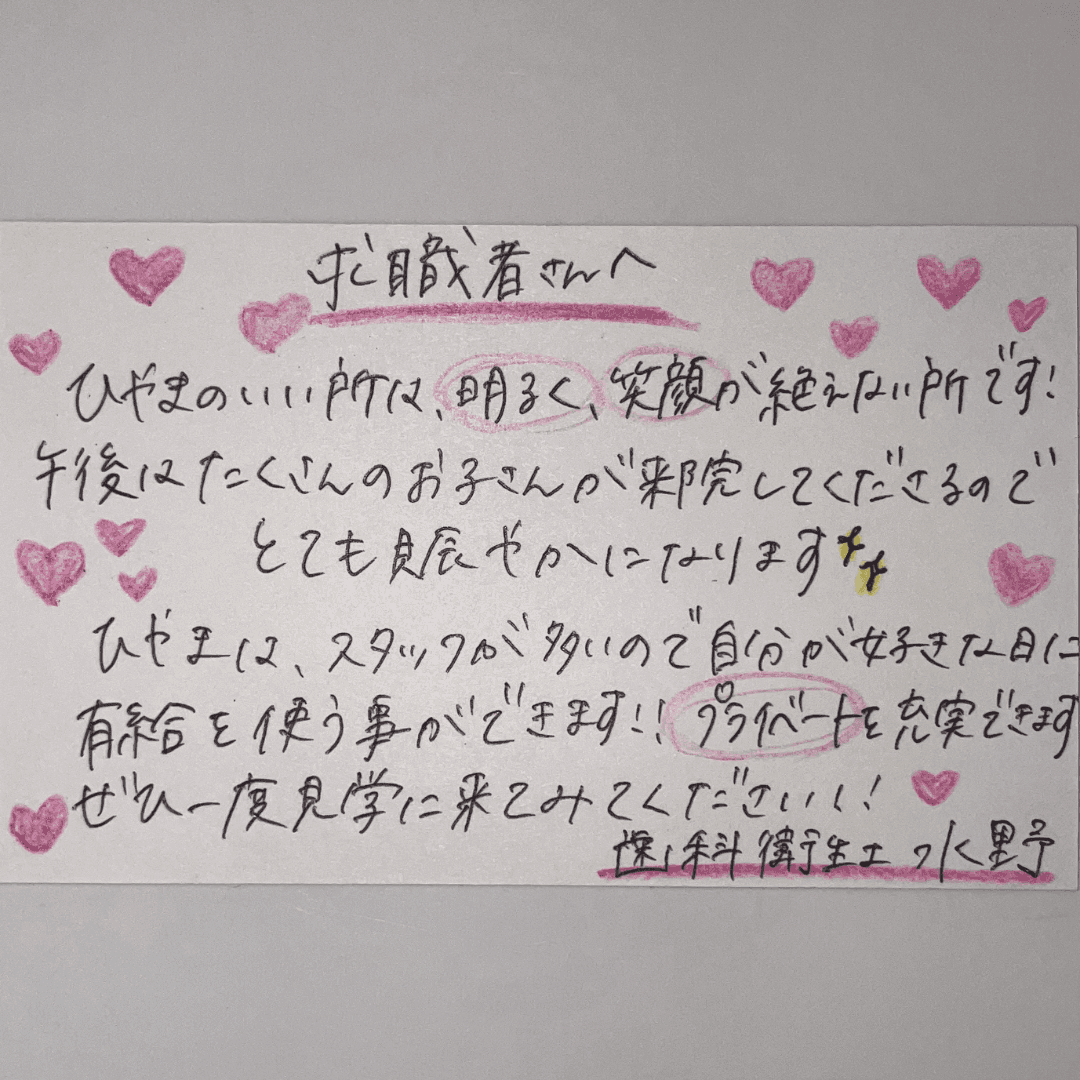 求職者さんへ
ひやまのいい所は、明るく、笑顔が絶えない所です!
午後はたくさんのお子さんが来院してくださるので
とても賑やかになります
ひやまは、スタッフが多いので自分が好きな日に
有給を使う事ができます!! プライベートを充実できます
ぜひ一度見学に来てみてください!
歯科衛生士 水野